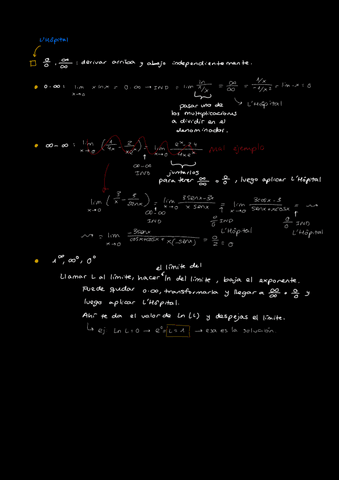 L'Hôpital
0/0, ∞/∞ : derivar arriba y abajo independientemente.
0·∞: lim x→0 x ln x = 0·∞ → IND = lim ln/1/x = ∞/∞ = 1/x/-1/x² =
L'Hôpital
pasar uno de
los multiplicaciones
a dividir en el
denominador.
∞-∞: lim x→0 mal ejemplo
∞-∞
IND
juntarlos
para tener ∞/∞ o 0/0, luego aplicar L'Hôpital
lim x→0 (3/x - 3/senx) = lim x→0 3senx-3x/x senx = lim x→0 3cosx-3/senx+xcosx =
∞-∞ IND
0/0 IND
L'Hôpital
0/0 IND
L'Hôpital
lim x→0 -3senx/cosx+cosx+x(-senx) = 0/2 = 0
1^∞, ∞⁰, 0⁰
el límite del
Llamar L al límite, hacer ln del límite, baja el exponente.
Puede quedar 0·∞, transformarla y llegar a ∞/∞ o 0/0 y
luego aplicar L'Hôpital.
Ahí te da el valor de Ln(L) y despejas el límite.
ej Ln L=0 → e⁰= L=1 → esa es la solución.